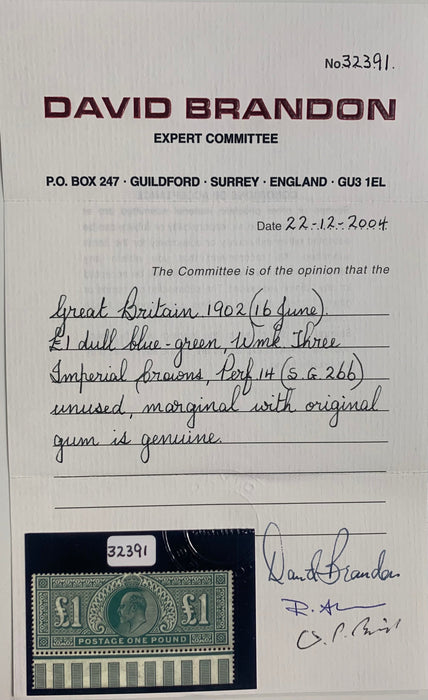 No. 32391.
DAVID BRANDON
EXPERT COMMITTEE
P.O. BOX 247 · GUILDFORD · SURREY · ENGLAND · GU3 1EL
Date 22-12-2004
The Committee is of the opinion that the
Great Britain 1902 (16 June)
£1 dull blue-green, Wmk Three
Imperial Crowns, Perf. 14 (S.G. 266)
unused, marginal with original
gum is genuine.
32391
David Brandon
£1 £1
POSTAGE ONE POUND